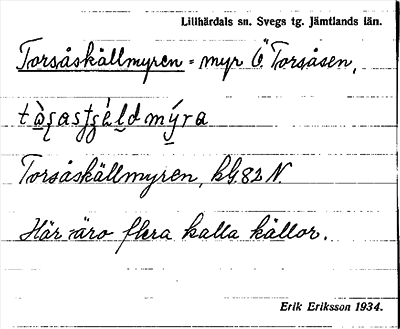 Lillhärdals sn. Svegs tg. Jämtlands län.
Torsåskällmyren = myr Ö Torsåsen,
Torsåskällmyren, bl. 82 N.
Här äro flera kalla källor.
Erik Eriksson 1934.